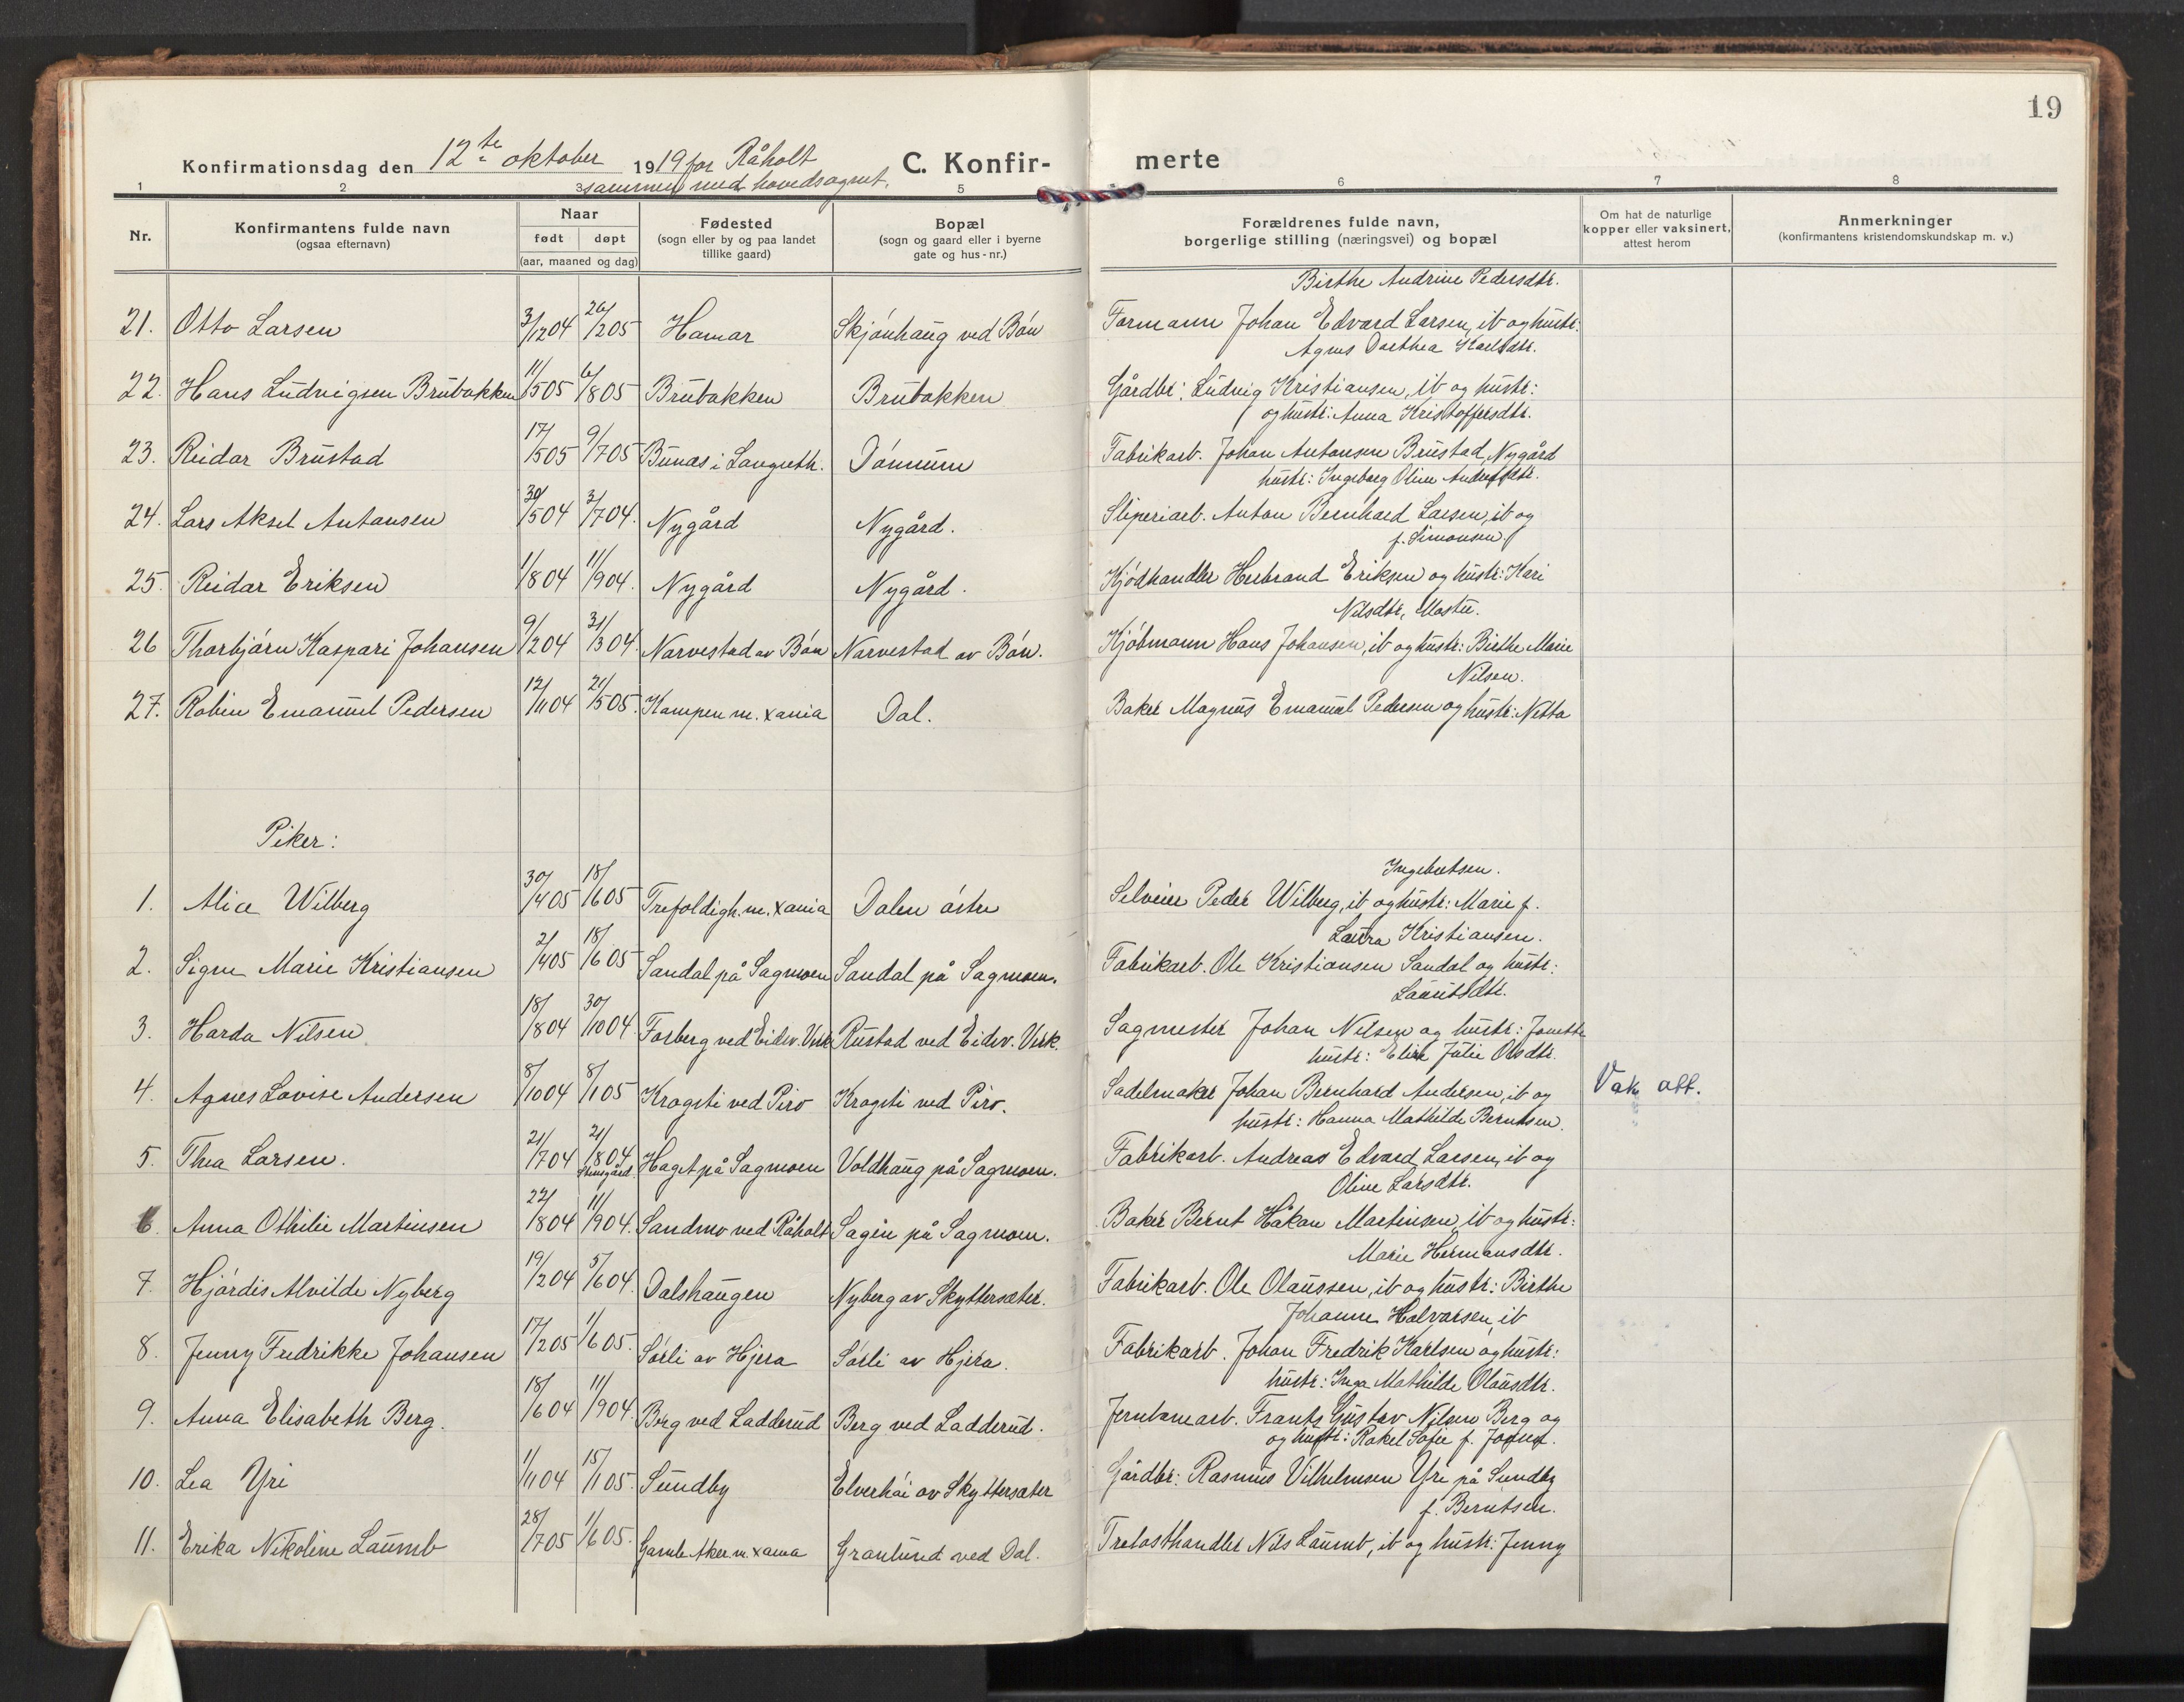 19
Konfirmationsdag den 12te oktober 1919 for Råholt
sammen med hovedsognet.
C. Konfir-
merte
1 2 3 5 6 7 8
Nr.
Konfirmantens fulde navn
(ogsaa efternavn)
Naar
født døpt
(aar, maaned og dag)
Fødested
(sogn eller by og paa landet
tillike gaard)
Bopæl
(sogn og gaard eller i byerne
gate og hus-nr.)
Forældrenes fulde navn,
borgerlige stilling (næringsvei) og bopæl
Om hat de naturlige
kopper eller vaksinert,
attest herom
Anmerkninger
(konfirmantens kristendomskundskap m. v.)
Birthe Andrine Pedersdtr.
21. Otto Larsen 3/12 04 26/2 05 Hamar Skjønhaug ved Bøn Formann Johan Edvard Larsen, ib og hustr:
Agnes Dorthea Karlsdtr.
22. Hans Ludvigsen Brubakken 11/5 05 6/8 05 Brubakken Brubakken Gårdbr: Ludvig Kristiansen, ib og hustr:
og hustr: Anna Kristoffersdtr.
23. Reidar Brustad 17/5 05 9/7 05 Bunas i Langseth. Dønnum Fabrikarb. Johan Antonsen Brustad, Nygård
hustr: Ingeborg Oline Andersdtr.
24. Lars Aksel Antonsen 30/5 04 3/7 04. Nygård Nygård. Sliperiarb. Anton Bernhard Larsen, ib og
f. Simonsen.
25. Reidar Eriksen 1/8 04 11/9 04. Nygård Nygård. Kjødhandler Herbrand Eriksen og hustr: Kari
Nilsdtr, Mostu.
26 Thorbjørn Kaspari Johansen 9/2 04 31/3 04. Narvestad av Bøn Narvestad av Bøn. Kjøbmann Hans Johansen, ib og hustr: Birthe Marie
Nilsen.
27. Robin Emanuel Pedersen 12/11 04 21/5 05. Kampen m. Xania Dal. Baker Magnus Emanuel Pedersen og hustr: Netta
Piker:
Ingebretsen.
1. Alice Wilberg 30/4 05 18/6 05 Trefoldigh. m. Xania Dalen østre Selveier Peder Wilberg, ib og hustr: Marie f.
Laura Kristiansen.
2. Signe Marie Kristiansen 2/4 05 18/6 05 Sandal på Sagmoen Sandal på Sagmoen. Fabrikarb. Ole Kristiansen Sandal og hustr:
Lauritsdtr.
3. Harda Nilsen 18/8 04 30/10 04. Forberg ved Eidsv. Verk Rustad ved Eidsv. Verk. Sagmester Johan Nilsen og hustr: Jonette
hustr: Elise Julie Olsdtr.
4. Agnes Lovise Andersen 8/10 04 8/1 05 Krogsti ved Piro Krogsti ved Piro. Sadelmaker Johan Bernhard Andersen, ib og Vak att.
hustr: Hanna Mathilde Berntsen.
5. Thea Larsen. 21/7 04 21/8 04 Haget på Sagmoen Voldhaug på Sagmoen. Fabrikarb. Andreas Edvard Larsen, ib og
Oline Larsdtr.
6. Anna Othilie Martinsen 22/8 04 11/9 04. Sandmo ved Råholt Sagin på Sagmoen. Baker Bernt Håkon Martinsen, ib og hustr:
Marie Hermansdtr.
7. Hjørdis Alvilde Nyberg 19/2 04 5/6 04. Dalshaugen Nyberg av Skyttersæter. Fabrikarb. Ole Olaussen, ib og hustr: Birthe
Johanne Halvorsen, ib
8. Jenny Fredrikke Johansen 17/2 05 1/6 05. Sørli av Hjera Sørli av Hjera. Fabrikarb. Johan Fredrik Karlsen og hustr:
hustr: Inga Mathilde Olausdtr.
9. Anna Elisabeth Berg. 18/6 04 11/9 04. Berg ved Ladderud Berg ved Ladderud. Jernbanearb. Frants Gustav Nilsen Berg og
og hustr: Rakel Sofie f.
10. Lea Yri 1/11 04 15/1 05. Sundby Elverhøi av Skyttersæter Gårdbr: Rasmus Vilhelmsen Yri på Sundby
f. Berntsen.
11. Erika Nikoline Laumb 28/7 05 1/6 05. Gamle Aker m. Xania Granlund ved Dal. Trelasthandler Nils Laumb, ib og hustr: Jenny